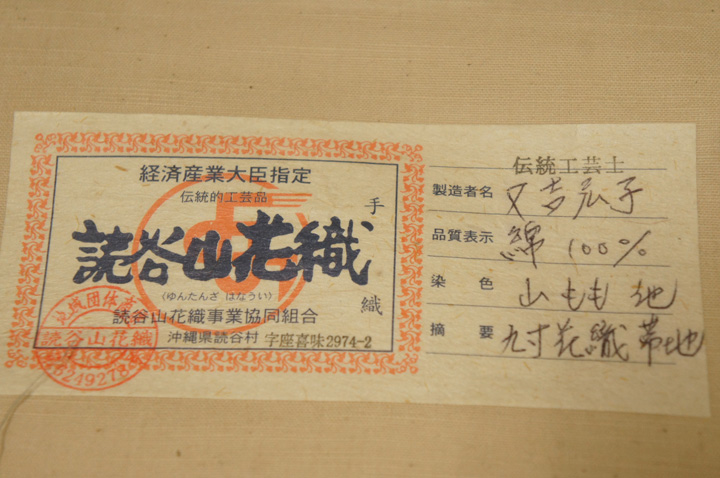 経済産業大臣指定
伝統的工芸品
読谷山花織
(ゆんたんざ はなうい)
手織
読谷山花織事業協同組合
沖縄県読谷村 字座喜味2974-2
地域団体商
読谷山花織
伝統工芸士
製造者名 又吉弘子
品質表示 綿 100%
染色 山もも 地
摘要 九寸花織帯地